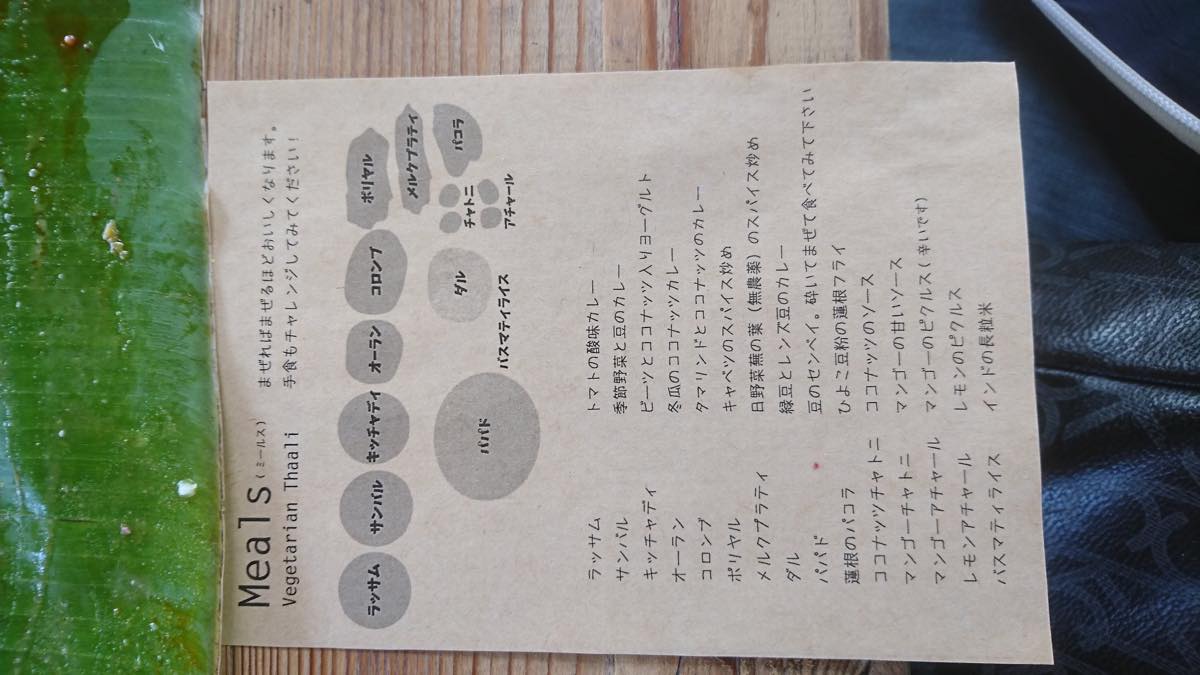 Meals (ミールス) まぜればまぜるほどおいしくなります。
Vegetarian Thaali 手食もチャレンジしてみてください！
ラッサム サンバル キッチャディ オーラン コロンブ ポリヤル
メルケプラティ
パパド バスマティライス ダル チャトニ アチャール パコラ
ラッサム トマトの酸味カレー
サンバル 季節野菜と豆のカレー
キッチャディ ビーツとココナッツ入りヨーグルト
オーラン 冬瓜のココナッツカレー
コロンブ タマリンドとココナッツのカレー
ポリヤル キャベツのスパイス炒め
メルクプラティ 日野菜蕪の葉（無農薬）のスパイス炒め
ダル 緑豆とレンズ豆のカレー
パパド 豆のセンベイ。砕いてまぜて食べてみて下さい
蓮根のパコラ ひよこ豆粉の蓮根フライ
ココナッツチャトニ ココナッツのソース
マンゴーチャトニ マンゴーの甘いソース
マンゴーアチャール マンゴーのピクルス（辛いです）
レモンアチャール レモンのピクルス
バスマティライス インドの長粒米